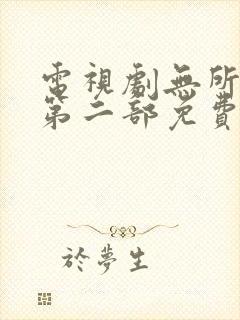 電視劇無所
第二部免費
於夢生